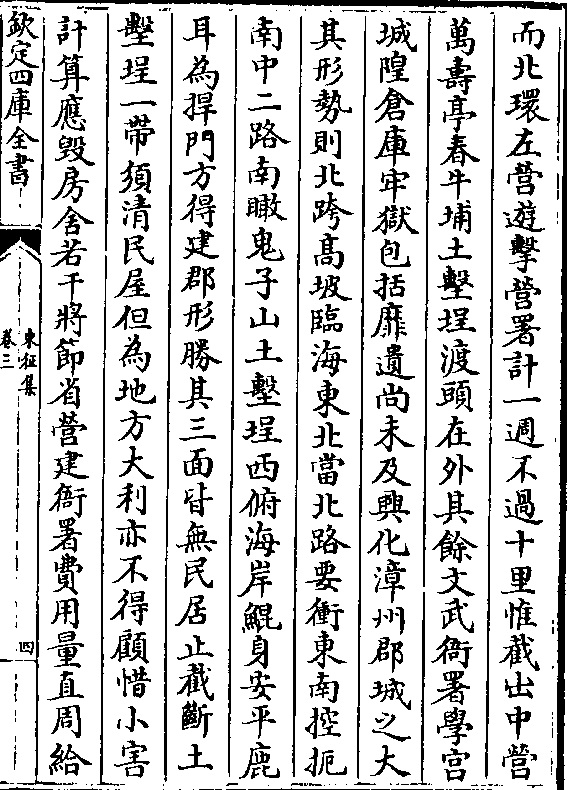 而北環左營遊擊營署計一週不過十里惟截出中營
萬壽亭春牛埔土墼埕渡頭在外其餘文武衙署學宫
城隍倉庫牢獄包括靡遺尚未及興化漳州郡城之大
其形勢則北跨髙坡臨海東北當北路要衝東南控扼
南中二路南瞰鬼子山土墼埕西俯海岸鯤身安平鹿
耳為捍門方得建郡形勝其三面皆無民居止截斷土
墼埕一帶須清民屋但為地方大利亦不得顧惜小害
計算應毁房舍若干將節省營建衙署費用量直周給
欽定四庫全書
東征集
卷三
四